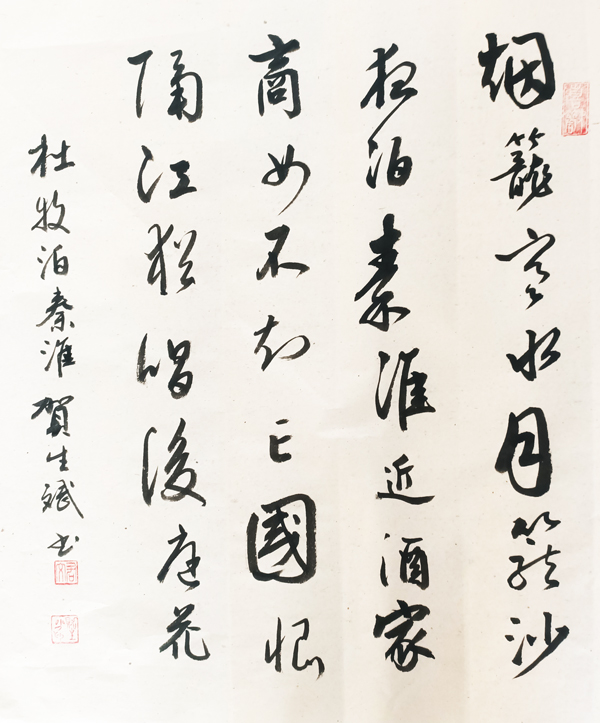 烟籠寒水月籠沙
夜泊秦淮近酒家
商女不知亡國恨
隔江猶唱後庭花
杜牧泊秦淮 賀生斌書